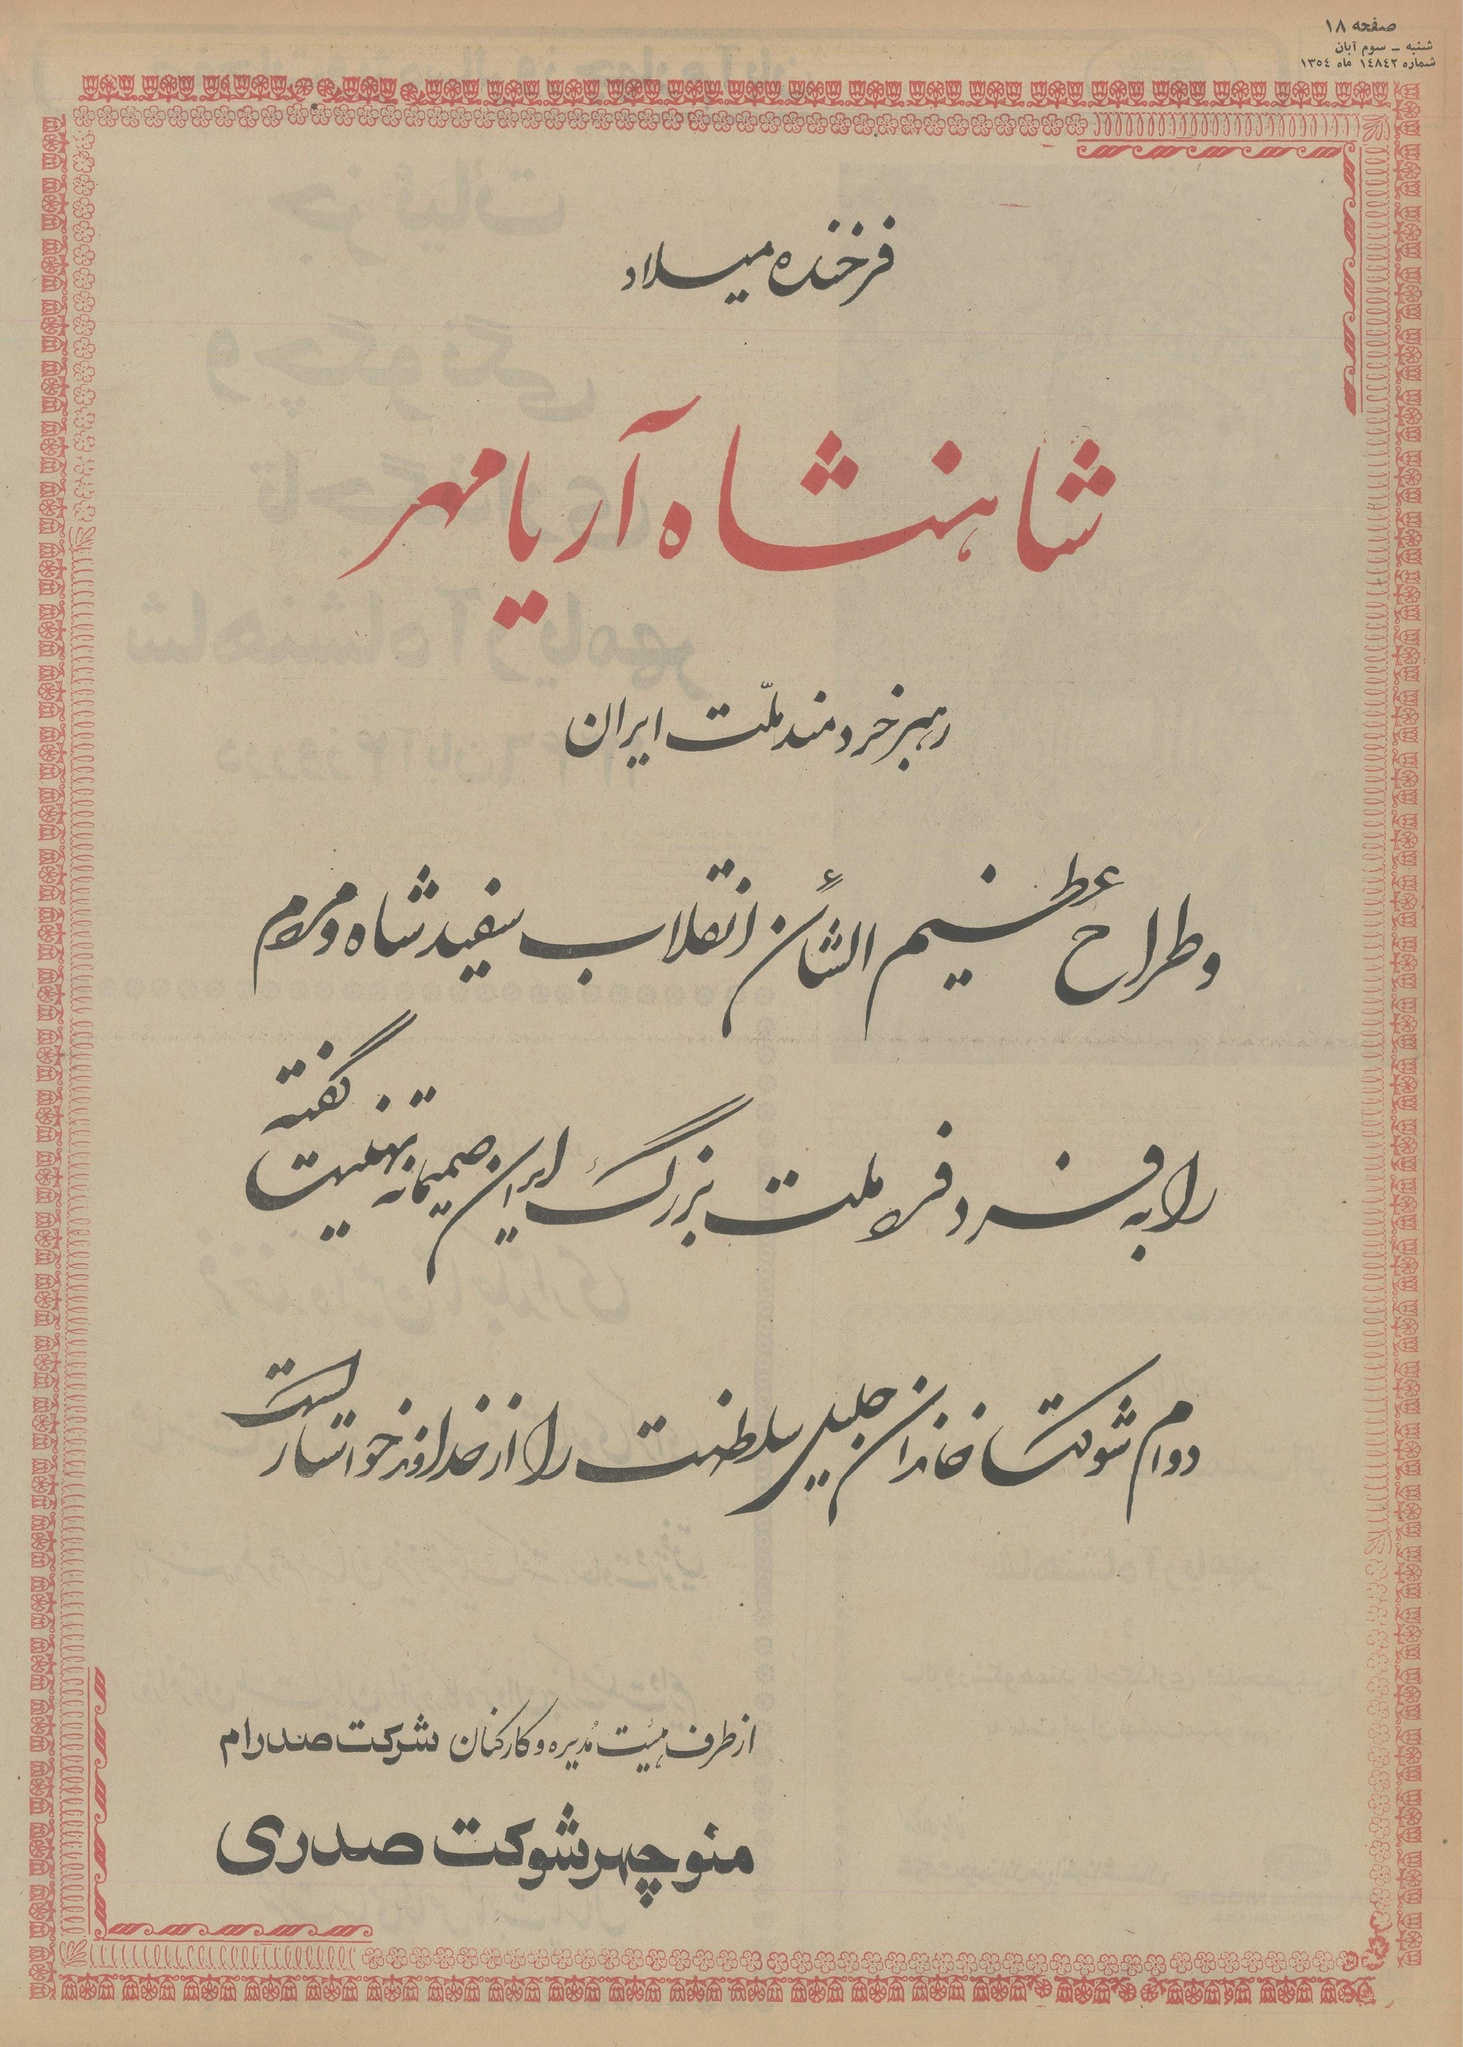 صفحه ۱۸
شنبه ـ سوم آبان
شماره ۱۴۸۴۲ ماه ۱۳۵۴
فرخنده میلاد
شاهنشاه آریامهر
رهبر خردمند ملّت ایران
و طراح عظیم الشأن انقلاب سفید شاه و مردم
را به فرد فرد ملت بزرگ ایران صمیمانه تهنیت گفته
دوام شوکت خاندان جلیل سلطنت را از خداوند خواستار است
از طرف هیئت مدیره و کارکنان شرکت صدرام
منوچهر شوکت صدری